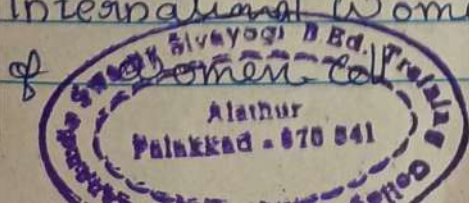 International Wom
of Women Cell
Swamy Sivayogi B Ed. Training Colle
Alathur
Palakkad - 678 541